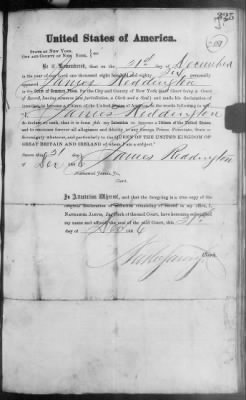 United States of America.
STATE OF NEW YORK,
CITY AND COUNTY OF NEW YORK, } ss:
Be it Remembered, that on the 31st day of December
in the year of our Lord one thousand eight hundred and eighty six personally
appeared James Reddington
in the Court of Common Pleas, for the City and County of New York (said Court being a Court of
Record, having common law jurisdiction, a Clerk and a Seal) and made his declaration
of intention to become a Citizen of the United States of America, in the words following to wit:
I, James Reddington
do declare on oath, that it is bona fide my intention to become a Citizen of the United States,
and to renounce forever all allegiance and fidelity to any foreign Prince, Potentate, State or
Sovereignty whatever, and particularly to the QUEEN OF THE UNITED KINGDOM OF
GREAT BRITAIN AND IRELAND of whom I am a subject.
Sworn this 31 day
of Dec 188 6 James Reddington
NATHANIEL JARVIS, JR.,
Clerk.
In Attestation Whereof, that the foregoing is a true copy of the
original declaration of intention remaining of record in my office, I,
NATHANIEL JARVIS, JR., Clerk of the said Court, have hereunto subscribed
my name and affixed the seal of the said Court, this 31st
day of Dec 188 6
Clerk.